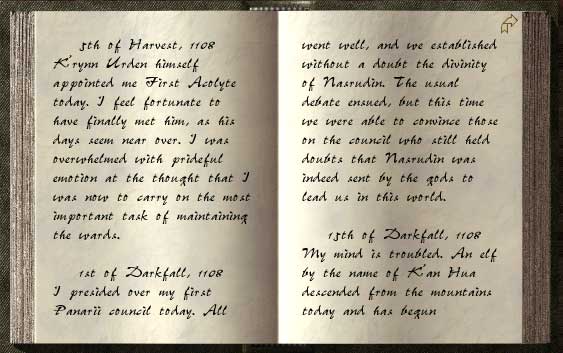 5th of Harvest, 1108
K'rynn Urden himself
appointed me First Acolyte
today. I feel fortunate to
have finally met him, as his
days seem near over. I was
overwhelmed with prideful
emotion at the thought that I
was now to carry on the most
important task of maintaining
the wards.
1st of Darkfall, 1108
I presided over my first
Panarii council today. All
went well, and we established
without a doubt the divinity
of Nasrudin. The usual
debate ensued, but this time
we were able to convince those
on the council who still held
doubts that Nasrudin was
indeed sent by the gods to
lead us in this world.
15th of Darkfall, 1108
My mind is troubled. An elf
by the name of K'an Hua
descended from the mountains
today and has begun